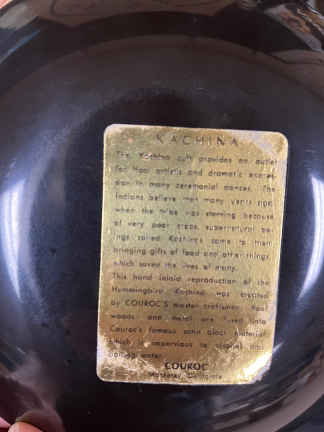 KACHINA
The Kachina cult provides an outlet
for Hopi artistic and dramatic expres-
sion in many ceremonial dances. The
Indians believe that many years ago,
when the tribe was starving because
of very poor crops, supernatural be-
ings called Kachinas came to them
bringing gifts of food and other things
which saved the lives of many.
This hand inlaid reproduction of the
Hummingbird Kachina was created
by COUROC'S master craftsmen. Real
woods and metal are fused into
Couroc's famous satin gloss material
which is impervious to alcohol and
boiling water.
COUROC
Monterey, California